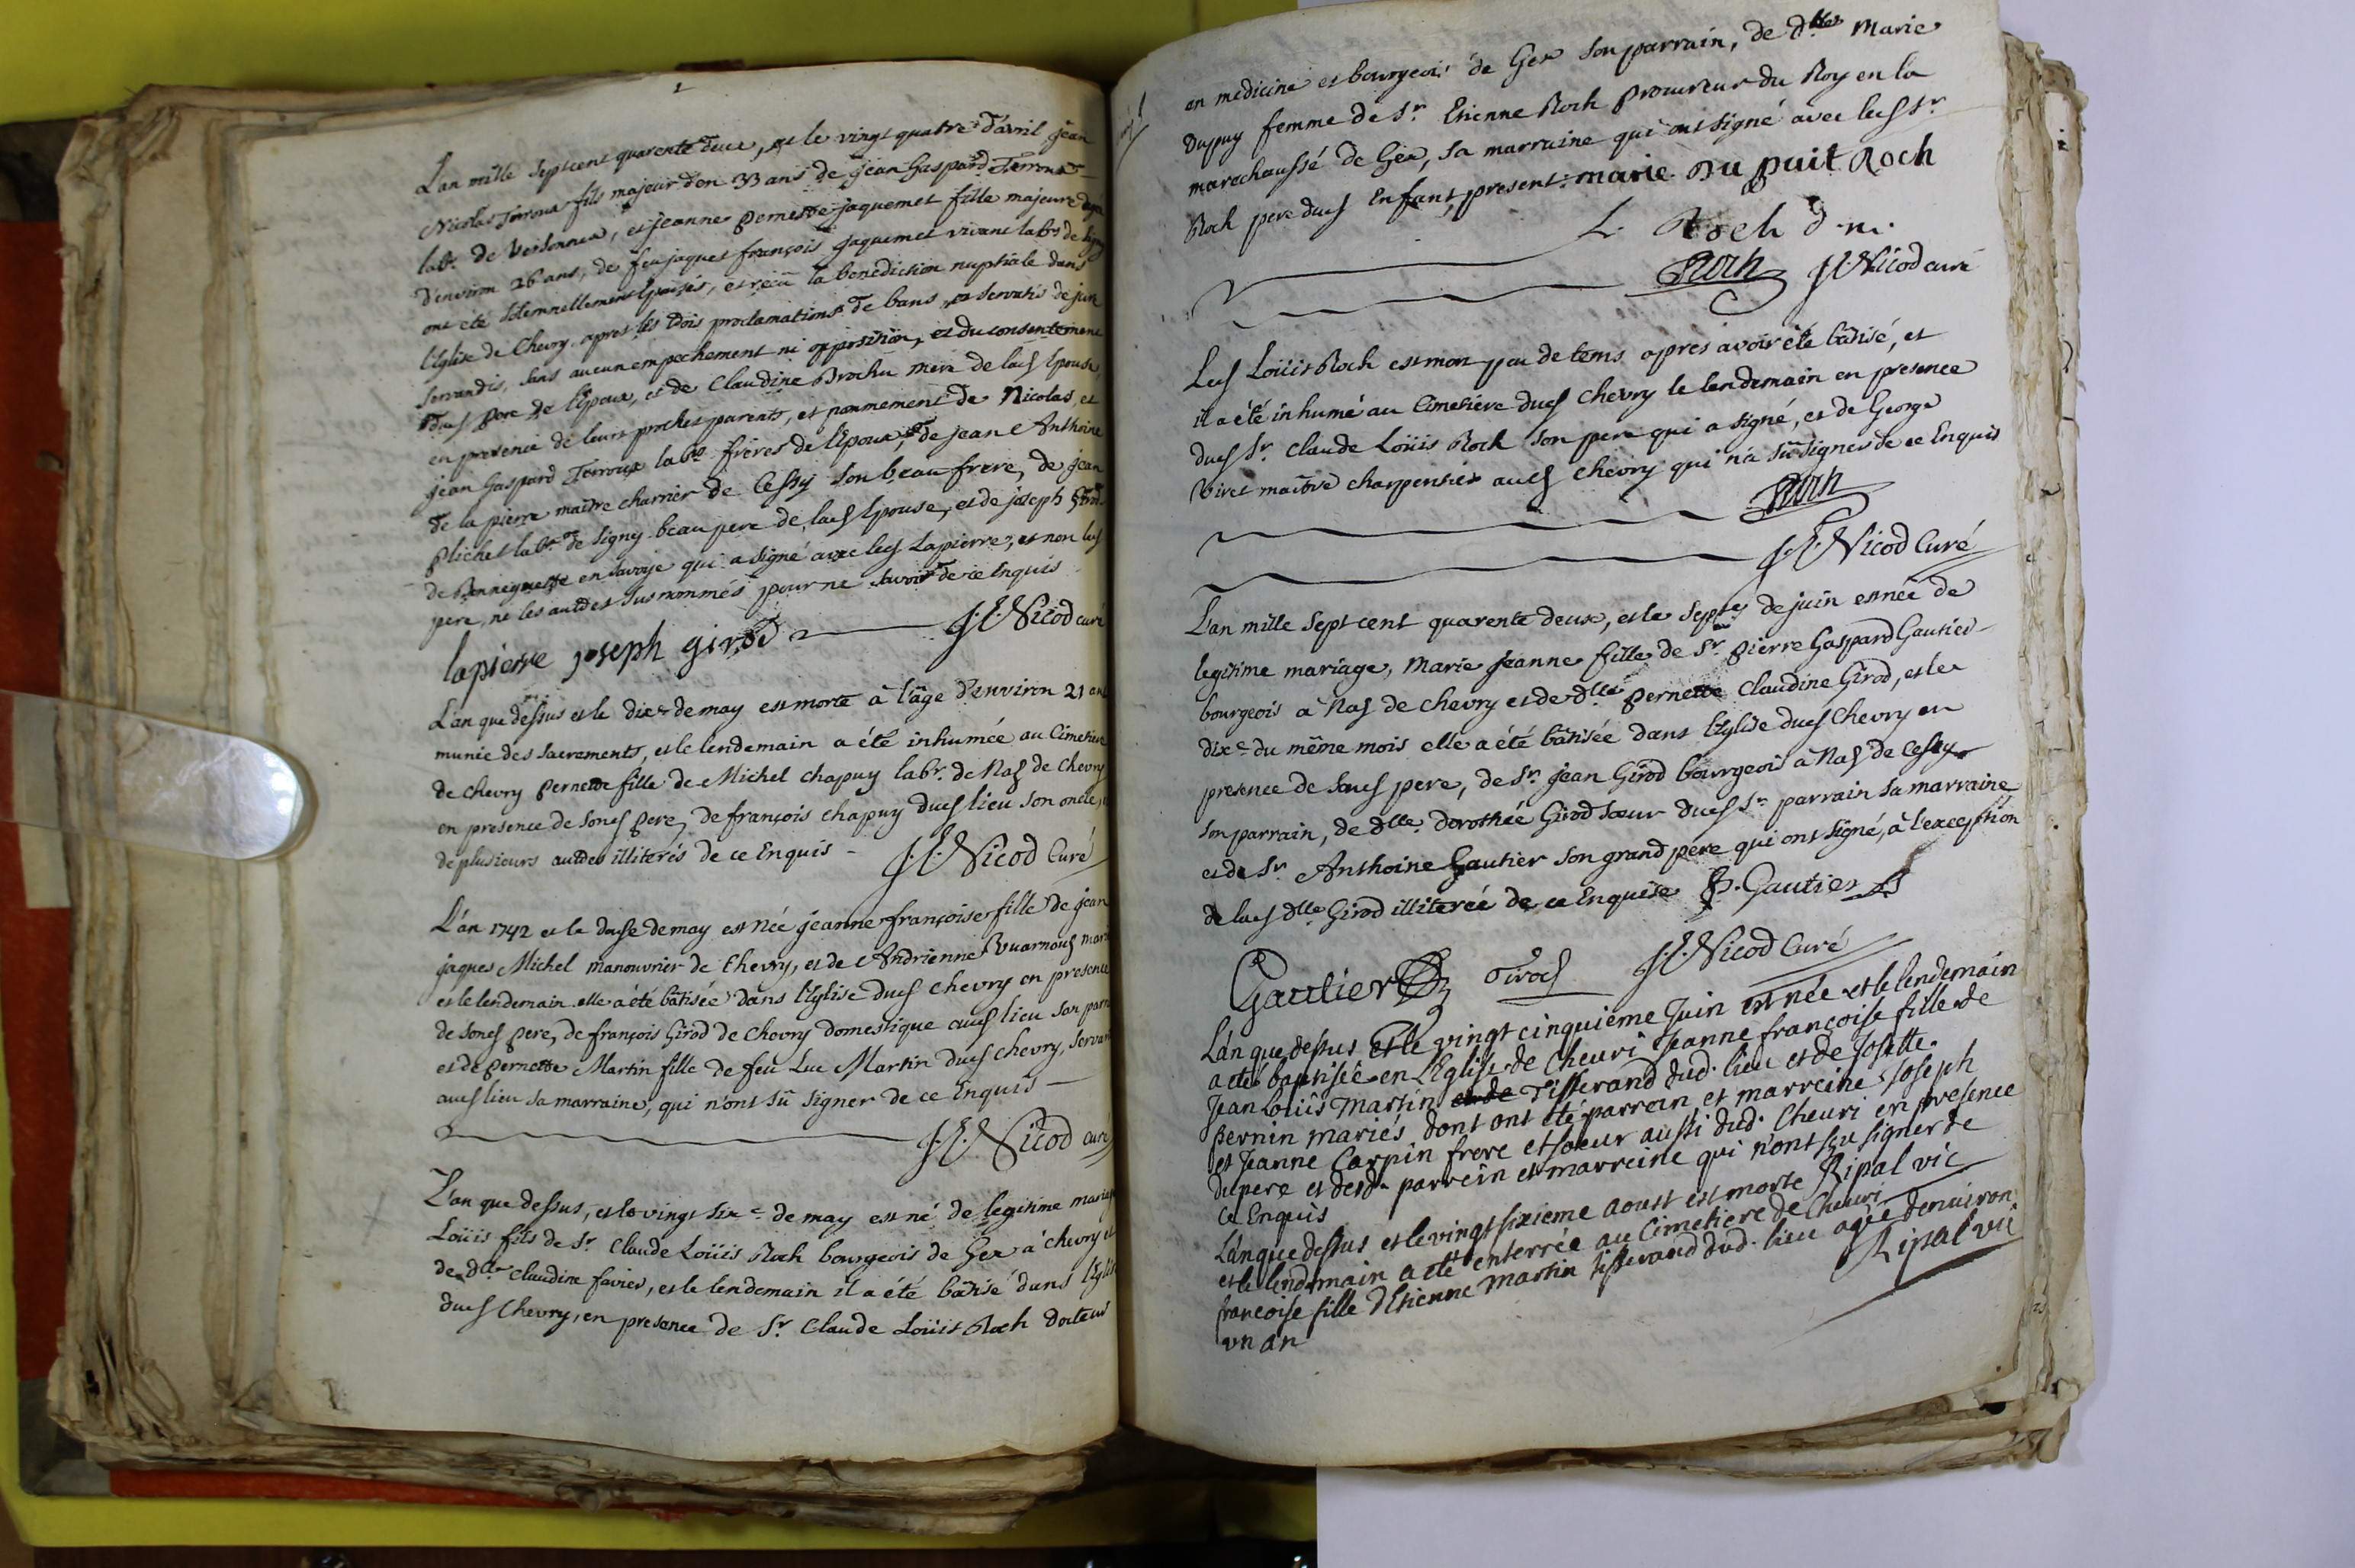 L'an mille sept cent quarente deux, et le vingt quatre d'avril jean
Nicolas Terroux fils majeur d'en 33 ans de jean Gaspard Terroux
labr. de Versonnex, et jeanne pernette jaquemet fille majeure
d'environ 26 ans, de feu jaques françois jaquemet vivant labr. de
ont été solemnellement épousés, et reçu la benediction nuptiale dans
l'Eglise de Chevry apres les trois proclamations de bans, et servatis de jure
servandis, sans aucun empechement ni opposition, et du consentement
dud pere de l'Epoux, et de Claudine Brochu mere de lad Epouse,
en presence de leurs proches parents, et nommement de Nicolas, et
jean Gaspard Terroux labrs freres de l'Epoux, de jean Anthoine
de la pierre maitre charrier de Cessy son beau frere, de jean
plichet labr. de Signy beau pere de lad Epouse, et de joseph Girod
de en Savoye qui a signé avec led Lapierre, et non led
pere, ne les autres sus nommés pour ne savoir de ce Enquis
lapierre joseph girod J.C. Nicod curé
L'an que dessus et le dixe de may est morte à l'âge d'environ 21 ans
munie des sacrements, et le lendemain a été inhumée au Cimetiere
de chevry pernette fille de Michel chapuy labr. de Naz de chevry
en presence de sond pere, de françois chapuy dud lieu son oncle,
de plusieurs autres illiterés de ce Enquis - J.C. Nicod Curé
L'an 1742 et le douse de may est née jeanne françoise fille de jean
jaques Michel manouvrier de Chevry, et de Andrienne
et le lendemain elle a été bâtisée dans l'Eglise dud chevry en presence
de sond pere, de françois Girod de chevry domestique aud lieu son
et de pernette Martin fille de feu Luc Martin dud chevry,
aud lieu sa marraine, qui n'ont sû signer de ce Enquis
J.C. Nicod curé
L'an que dessus, et le vingt sixe de may est né de legitime mariage
Loüis fils de Sr. Claude Loüis Roch bourgeois de Gex à chevry et
de dlle Claudine favier, et le lendemain il a été bâtisé dans l'Eglise
dud Chevry, en presence de Sr. Claude Loüis Roch docteur
en medicine et bourgeois de Gex son parrain, de dlle Marie
Dupuy femme de Sr. Etienne Roch procureur du Roy en la
marechaussé de Gex, sa marraine qui ont signé avec led Sr.
Roch pere dud Enfant, present: marie Du puit Roch
L. Roch d.m.
Roch J.C. Nicod curé
Led Loüis Roch est mort peu de tems après avoir été bâtisé, et
il a été inhumé au Cimetiere dud chevry le lendemain en presence
dud Sr. Claude Loüis Roch son pere qui a signé, et de George
Viret maitre charpentier aud chevry qui n'a sû signer de ce Enquis
Roch
J.C. Nicod Curé
L'an mille sept cent quarente deux, et le septe de juin est née de
legitime mariage, Marie Jeanne fille de Sr. pierre Gaspard Gautier
bourgeois à Naz de chevry et de dlle pernette Claudine Girod, et le
dixe du même mois elle a été bâtisée dans l'Eglise dud Chevry en
presence de sond pere, de Sr. Jean Girod bourgeois à Naz de Cessy
son parrain, de dlle dorothée Girod sœur dud Sr. parrain sa marraine
et de Sr. Anthoine Gautier son grand pere qui ont signé, à l'exception
de lad dlle Girod illiterée de ce Enquise P. Gautier
Gautier Girod J.C. Nicod Curé
L'an que dessus et le vingt cinquieme Juin est née et le lendemain
a eté baptisée en l'Eglise de Cheuri Jeanne françoise fille de
Jean Loüis Martin et de Tisserand dud. lieu et de Josette
pernin mariés dont ont été parrein et marreine Joseph
et Jeanne Carpin frere et soeur aussi dud. Cheuri en presence
du pere et desd. parrein et marreine qui n'ont sçu signer de
ce Enquis Ripal vic
L'an que dessus et le vingt sixieme aoust est morte
et le lendemain a eté enterrée au Cimetiere de Cheuri
francoise fille d'Etienne Martin tisserand dud. lieu agée denuiron
un an Ripal vic